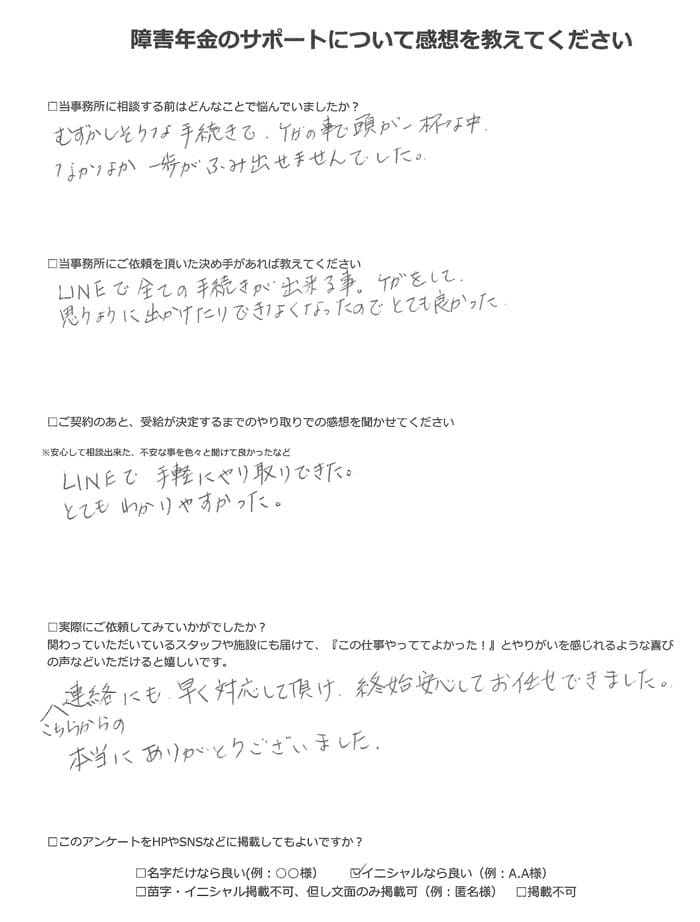 障害年金のサポートについて感想を教えてください
□当事務所に相談する前はどんなことで悩んでいましたか？
むずかしそうな手続きで、ケガの事で頭が一杯な中、
なかなか一歩がふみ出せませんでした。
□当事務所にご依頼を頂いた決め手があれば教えてください
LINEで全ての手続きが出来る事。ケガをして、
思うように出かけたりできなくなったのでとても良かった。
□ご契約のあと、受給が決定するまでのやり取りでの感想を聞かせてください
※安心して相談出来た、不安な事を色々と聞けて良かったなど
LINEで手軽にやり取りできた。
とてもわかりやすかった。
□実際にご依頼してみていかがでしたか？
関わっていただいているスタッフや施設にも届けて、『この仕事やっててよかった！』とやりがいを感じれるような喜び
の声などいただけると嬉しいです。
連絡にも早く対応して頂け、終始安心してお任せできました。
こちらからの
本当にありがとうございました。
□このアンケートをHPやSNSなどに掲載してもよいですか？
□名字だけなら良い(例：〇〇様） ☑イニシャルなら良い（例：A.A様）
□苗字・イニシャル掲載不可、但し文面のみ掲載可（例：匿名様） □掲載不可